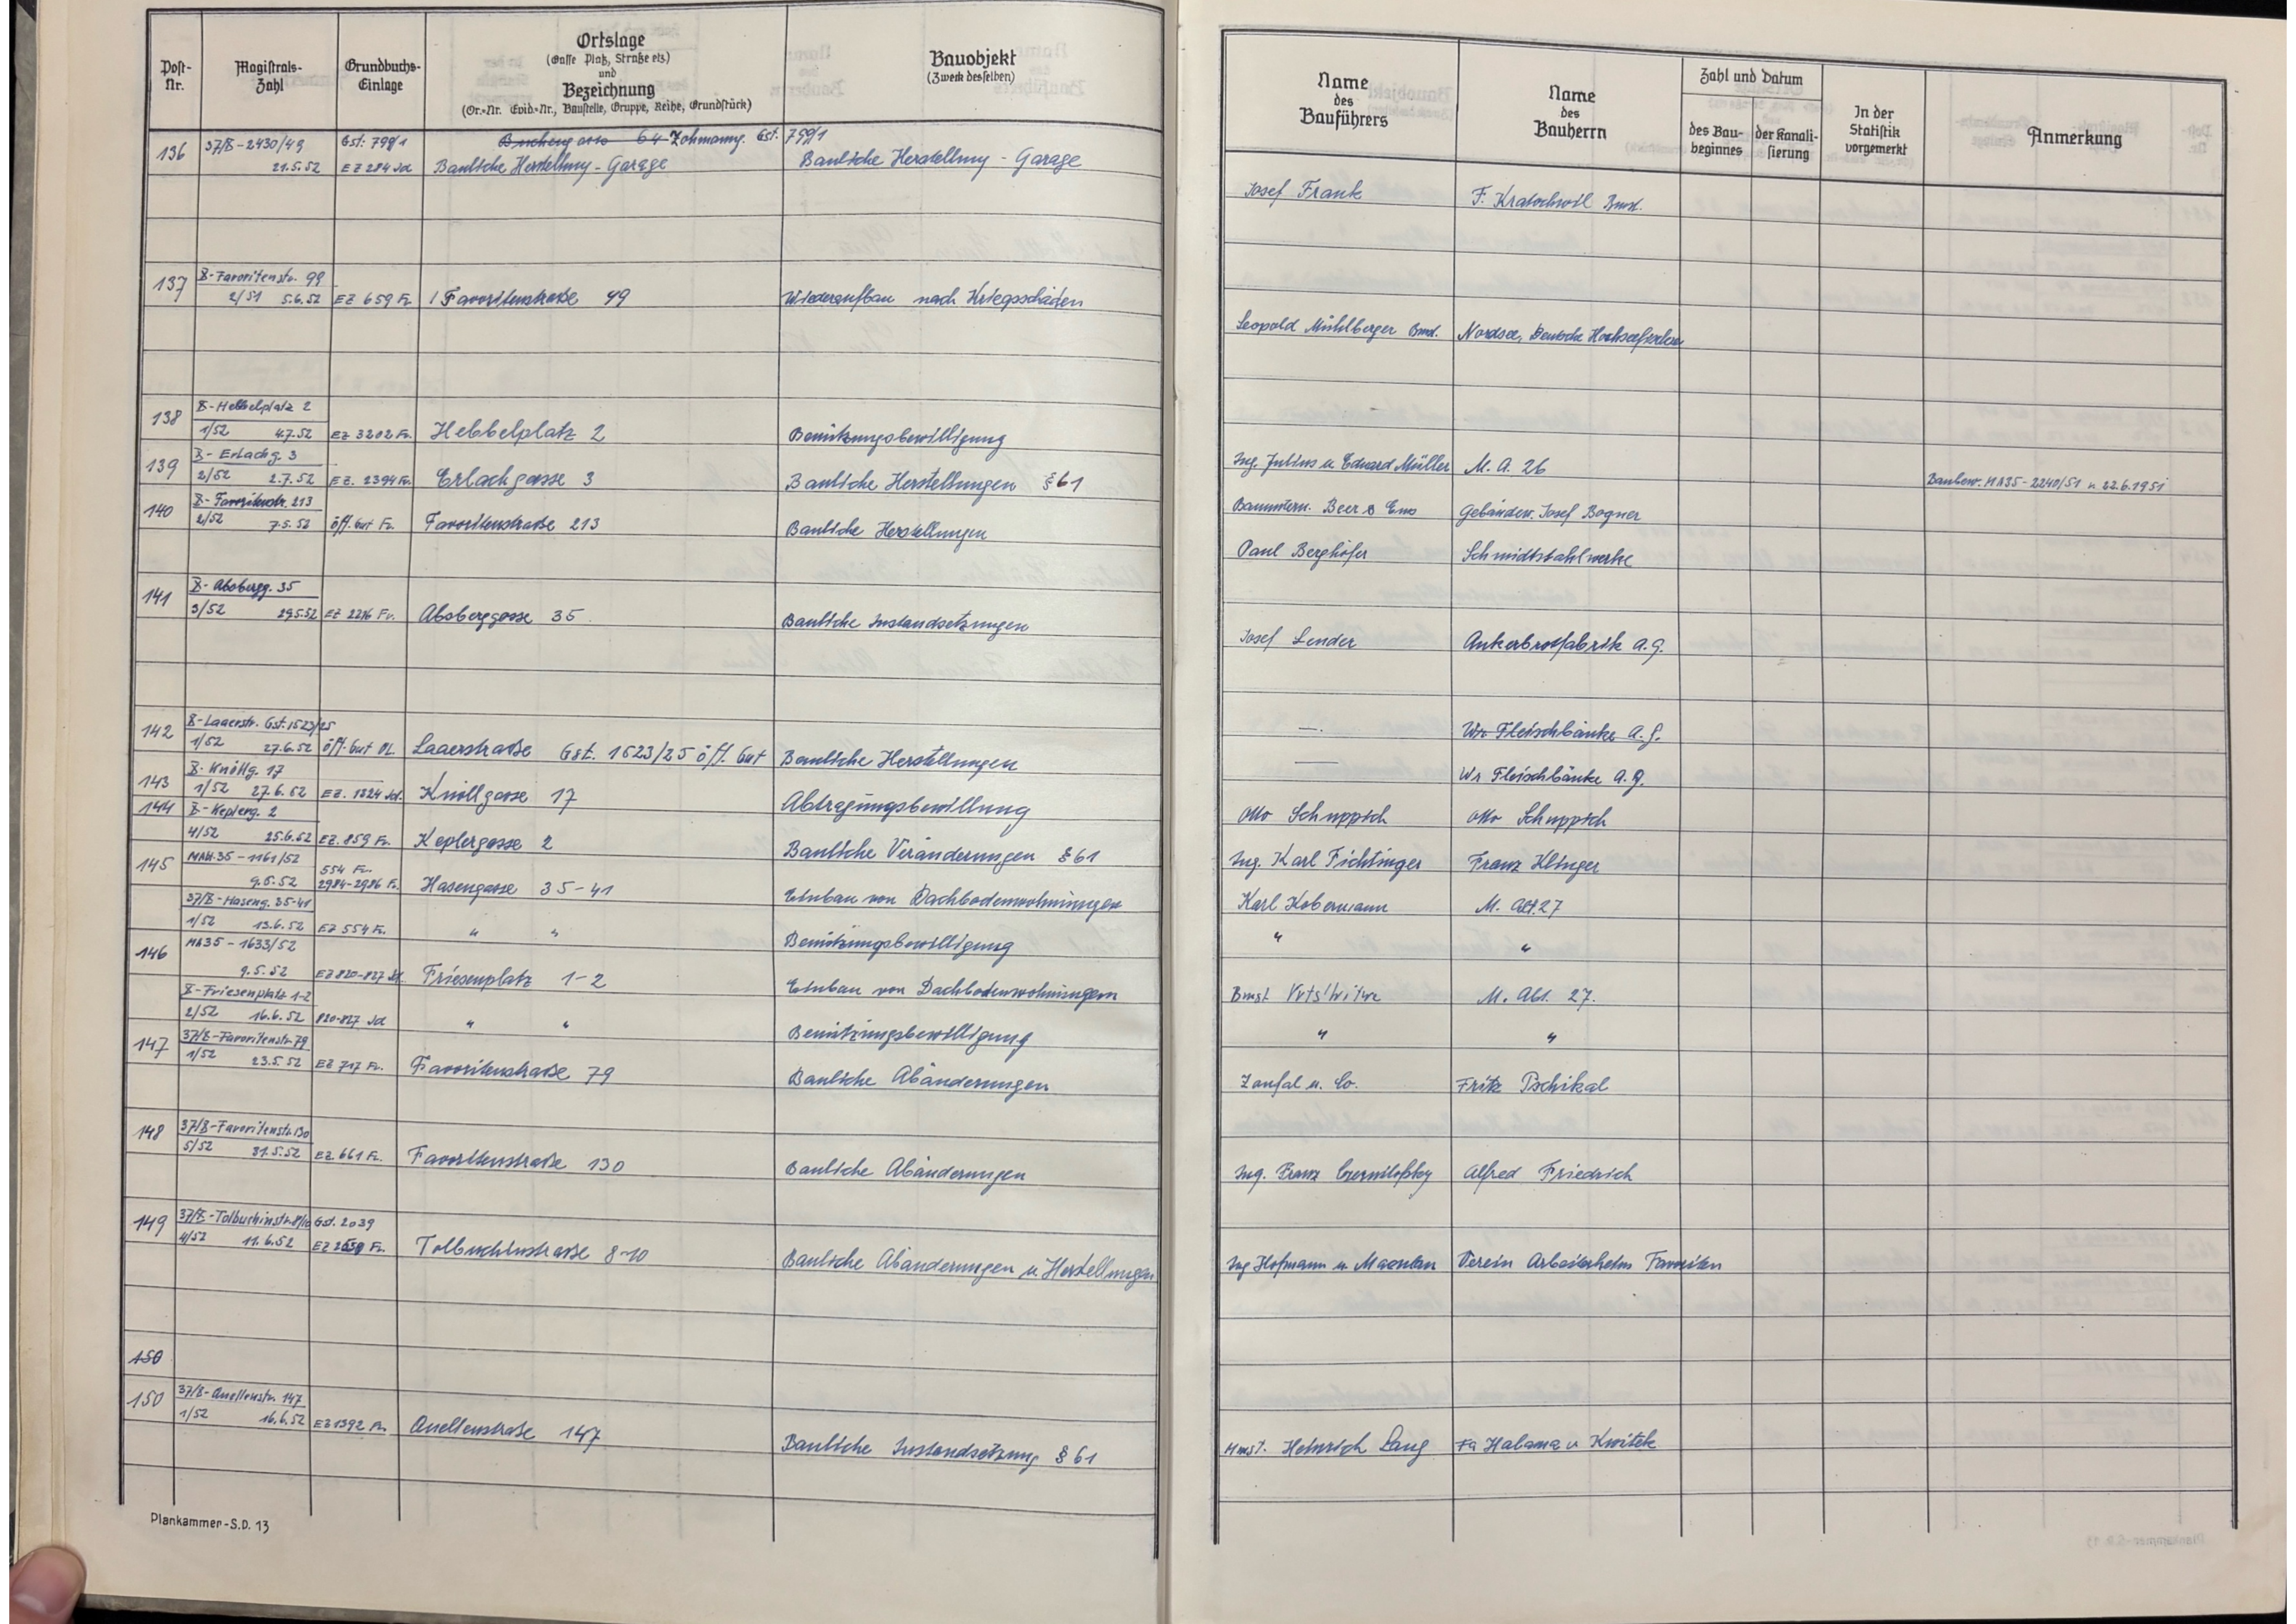 Post-Nr. Magistrats-Zahl Grundbuchs-Einlage Ortslage (Gasse Platz, Straße etz) und Bezeichnung (Or.-Nr. Evid.-Nr., Baustelle, Gruppe, Reihe, Grundstück) Bauobjekt (Zweck desselben)
Name des Bauführers Name des Bauherrn Zahl und Datum des Baubeginnes der Kanalisierung In der Statistik vorgemerkt Anmerkung
136 37/X-2430/49 Gst: 799/1 64 Gst. 799/1
21.5.52 EZ 284 Jd Bauliche Herstellung - Garage Bauliche Herstellung - Garage Josef Frank F. Kratochwil Bmst.
137 X-Favoritenstr. 99
2/51 5.6.52 EZ 659 Fv. Favoritenstraße 99 Wiederaufbau nach Kriegsschäden Leopold Mühlberger Bmst. Nordsee, Deutsche
138 X-Hebbelplatz 2
1/52 4.7.52 EZ 3202 Fv. Hebbelplatz 2 Benützungsbewilligung Ing. Julius u Eduard Müller M. A. 26 Baubew. MA35-2240/51 v. 22.6.1951
139 X-Erlachg. 3
2/52 2.7.52 EZ. 2394 Fv. Erlachgasse 3 Bauliche Herstellungen §61 Baumstrn. Beer & Gebäudev. Josef Bogner
140 X-Favoritenstr. 213
2/52 7.5.52 öff. Gut Fv. Favoritenstraße 213 Bauliche Herstellungen Paul Berghöfer Schmidtstahlwerke
141 X-Absbergg. 35
3/52 29.5.52 EZ 2216 Fv. Absberggasse 35 Bauliche Instandsetzungen Josef Lender Ankerbrotfabrik A.G.
142 X-Laaerstr. Gst. 1523/25
1/52 27.6.52 öff. Gut OL. Laaerstraße Gst. 1523/25 öff. Gut Bauliche Herstellungen —. Wr. Fleischbänke A.G.
143 X-Knöllg. 17
1/52 27.6.52 EZ. 1324 Jd. Knöllgasse 17 Abtragungsbewillung — Wr Fleischbänke A.G.
144 X-Keplerg. 2
4/52 25.6.52 EZ. 859 Fv. Keplergasse 2 Bauliche Veränderungen §61 Otto Schuppich Otto Schuppich
145 MAbt.35-1161/52 554 Fv.
9.5.52 2984-2986 Fv. Hasengasse 35-41 Einbau von Dachbodenwohnungen Ing. Karl Fichtinger Franz Klinger
37/X-Haseng. 35-41
1/52 13.6.52 EZ 554 Fv. " " Benützungsbewilligung Karl Kobermann M. Abt. 27
146 MA35-1633/52 " "
9.5.52 EZ 820-827 Jd. Friesenplatz 1-2 Einbau von Dachbodenwohnungen Bmst M. Abt. 27.
X-Friesenplatz 1-2
2/52 16.6.52 820-827 Jd " " Benützungsbewilligung " "
147 37/X-Favoritenstr. 79
1/52 23.5.52 EZ 717 Fv. Favoritenstraße 79 Bauliche Abänderungen Zaufal u. Co. Fritz Pschikal
148 37/X-Favoritenstr. 130
5/52 31.5.52 EZ 661 Fv. Favoritenstraße 130 Bauliche Abänderungen Ing. Franz Alfred Friedrich
149 37/X-Tolbuchinstr. 8/10 Gst. 2039
4/52 11.6.52 EZ Fv. Tolbuchinstraße 8-10 Bauliche Abänderungen u Herstellungen Ing Hofmann u. Maculan Verein Arbeiterheim Favoriten
150
150 37/X-Quellenstr. 147
1/52 16.6.52 EZ 1392 Fv. Quellenstraße 147 Bauliche Instandsetzung §61 Hmst. Heinrich Lang Fa Halama u Kwitek
Plankammer-S.D. 13